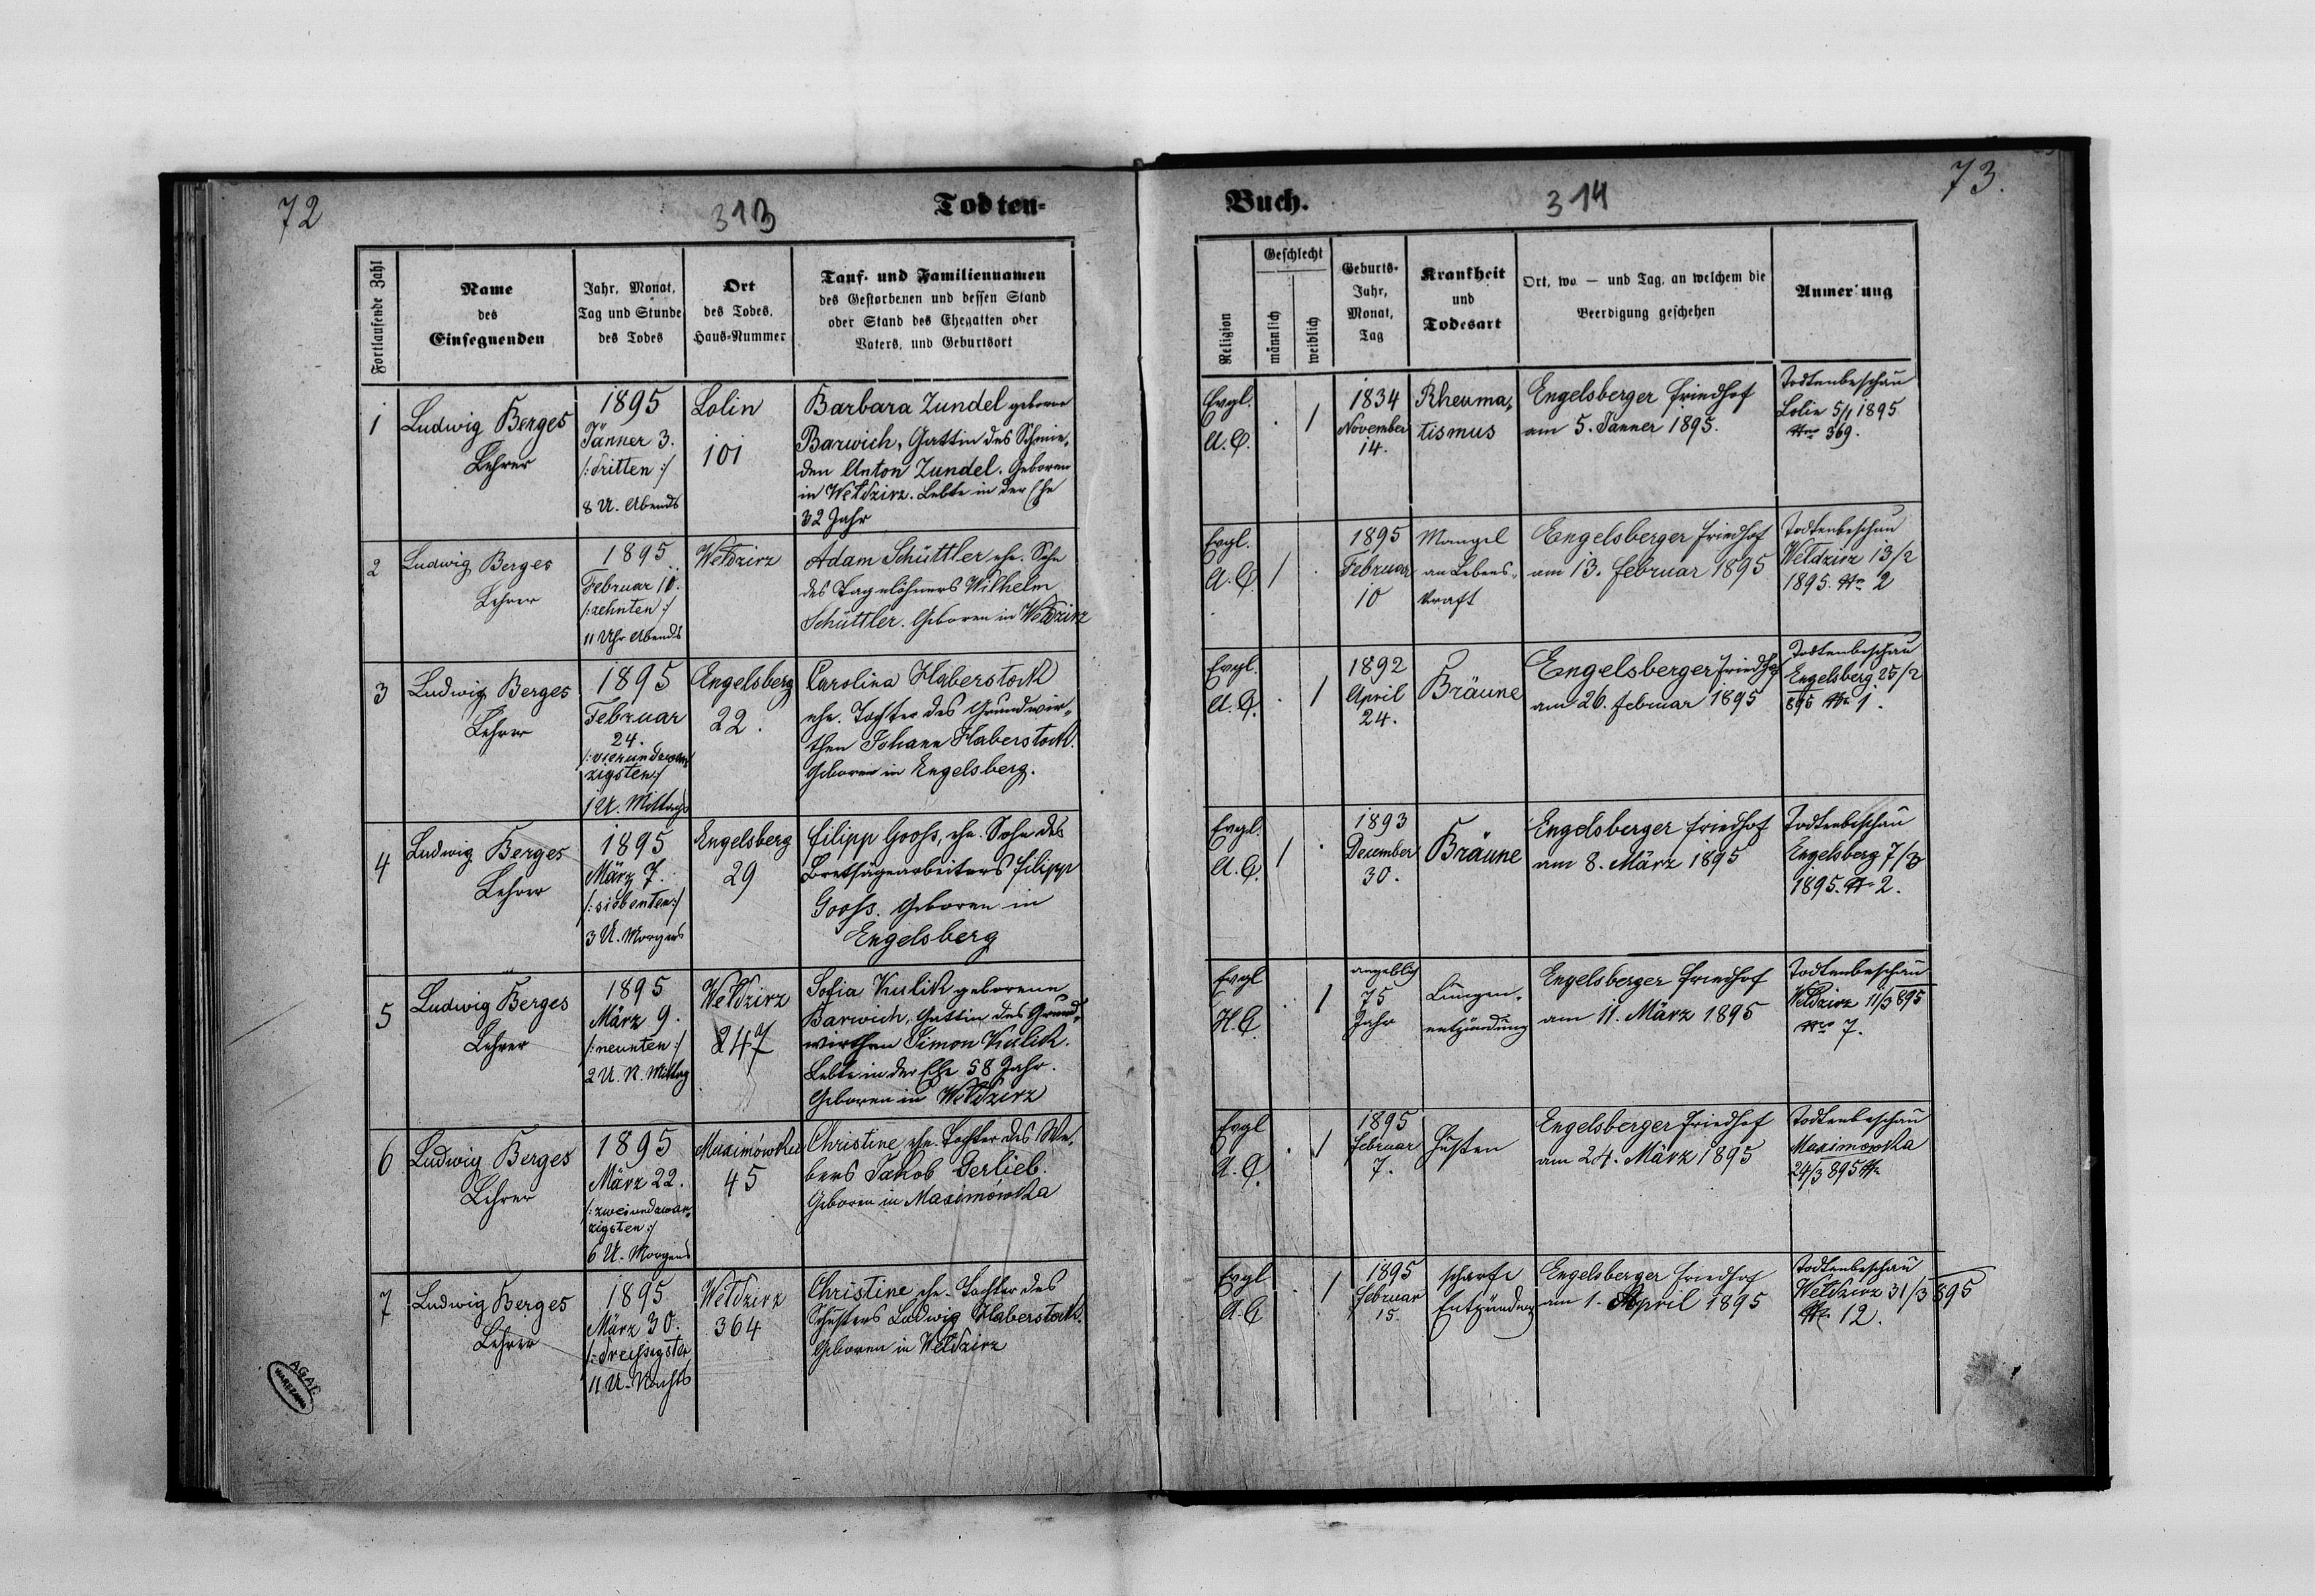 72
313
Todten-
Fortlaufende Zahl
Name
des
Einsegnenden
Jahr, Monat,
Tag und Stunde
des Todes
Ort
des Todes,
Haus-Nummer
Tauf- und Familiennamen
des Gestorbenen und dessen Stand
oder Stand des Ehegatten oder
Vaters, und Geburtsort
1
Ludwig Berges
Lehrer
1895
Jänner 3.
/: dritten :/
8 U. Abends
Lolin
101
Barbara Zundel geborne
Barwich, Gattin des Schmie-
den Anton Zundel. Geboren
in Wełdzirz. Lebte in der Ehe
32 Jahr
2
Ludwig Berges
Lehrer
1895
Februar 10.
/: zehnten :/
11 Uhr Abends
Wełdzirz
Adam Schüttler ehe. Sohn
des Tagelöhners Wilhelm
Schüttler. Geboren in Wełdzirz
3
Ludwig Berges
Lehrer
1895
Februar
24.
/: vierundzwan
zigsten :/
1 U. Mittags
Engelsberg
22.
Carolina Haberstock
ehe. Tochter des Grundwir-
then Johann Haberstock.
Geboren in Engelsberg.
4
Ludwig Berges
Lehrer
1895
März 7.
/: siebenten :/
3 U. Morgens
Engelsberg
29
Filipp Gooss, ehe. Sohn des
Bretsägearbeiters Filipp
Gooss. Geboren in
Engelsberg
5
Ludwig Berges
Lehrer
1895
März 9.
/: neunten :/
2 U. N. Mittag
Wełdzirz
247
Sofia Kulik geborene
Barwich, Gattin des Grund-
wirthen Simon Kulik.
Lebte in der Ehe 58 Jahr.
Geboren in Wełdzirz
6
Ludwig Berges
Lehrer
1895
März 22.
/: zweiundzwan-
zigsten :/
6 U. Morgens
Maximówka
45
Christine ehe. Tochter des We-
bers Jakob Gerlieb.
Geboren in Maximówka
7
Ludwig Berges
Lehrer
1895
März 30.
/: dreissigsten
11 U. Nachts
Wełdzirz
364
Christine ehe. Tochter des
Schusters Ludwig Haberstock.
Geboren in Wełdzirz
A.G.A.D.
WARSZAWA
Buch.
314
73.
Religion
Geschlecht
männlich
weiblich
Geburts-
Jahr,
Monat,
Tag
Krankheit
und
Todesart
Ort, wo — und Tag, an welchem die
Beerdigung geschehen
Anmer ung
Evgl.
A. C.
. 1
1834
November
14.
Rheuma-
tismus
Engelsberger Friedhof
am 5. Jänner 1895.
Todtenbeschau
Lolin 5/1 1895
Nro 369.
Evgl.
A. C.
1 .
1895
Februar
10
Mangel
an Lebens-
kraft
Engelsberger Friedhof
am 13. Februar 1895
Todtenbeschau
Wełdzirz 13/2
1895. Nr. 2
Evgl.
A. C.
. 1
1892
April
24.
Bräune
Engelsberger Friedhof
am 26. Februar 1895
Todtenbeschau
Engelsberg 25/2
895 Nr. 1.
Evgl.
A. C.
1 .
1893
December
30.
Bräune
Engelsberger Friedhof
am 8. März 1895
Todtenbeschau
Engelsberg 7/3
1895. Nr. 2.
Evgl
H. C.
. 1
angeblich
75
Jahr
Lungen-
entzündung
Engelsberger Friedhof
am 11. März 1895
Todtenbeschau
Wełdzirz 11/3 895
Nro 7.
Evgl
A. C.
. 1
1895
Februar
7.
Husten
Engelsberger Friedhof
am 24. März 1895
Todtenbeschau
Maximowka
24/3 895 Nr.
Evgl
A. C
. 1
1895
Februar
15.
scharfe
Entzündung
Engelsberger Friedhof
am 1. April 1895
Todtenbeschau
Wełdzirz 31/3 895
Nr. 12.